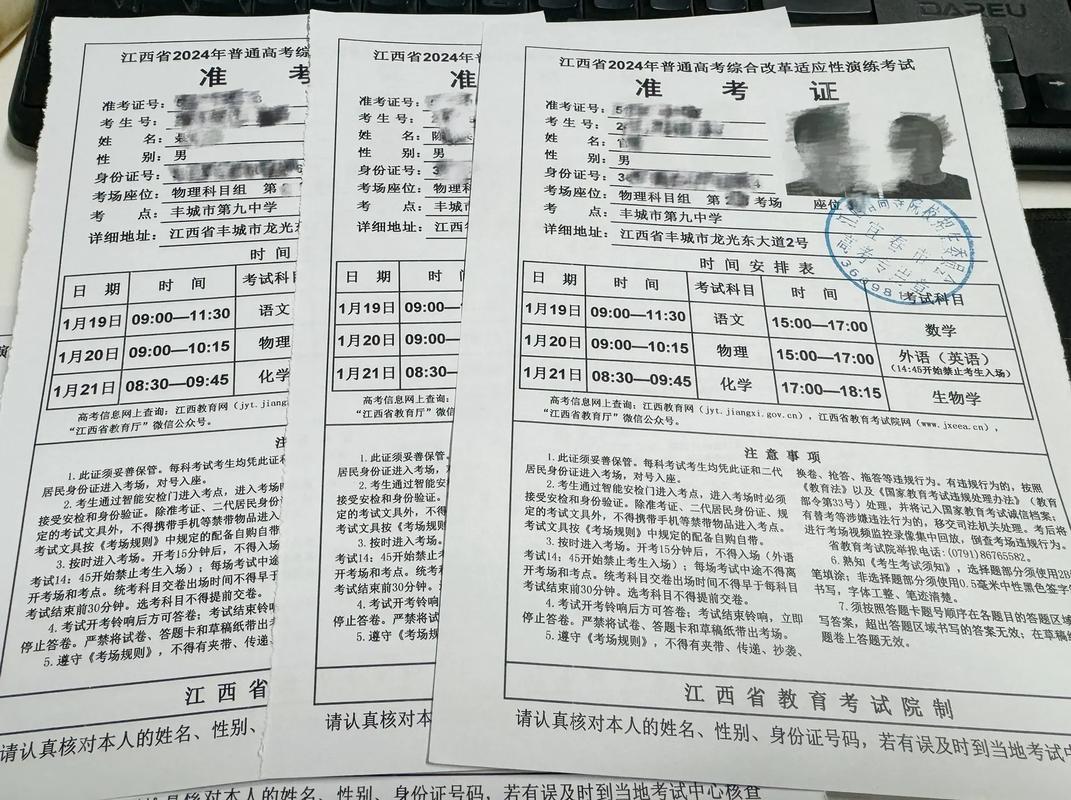 DAREU
江西省2024年普通高考综
准 考
准考证号:
考生号:
姓 名:
性 别: 男
身份证号:
考场座位: 物理科目组 第
考 点: 丰城市第九中学
详细地址: 江西省丰城市龙光东
时 间
日 期 时 间 考试科目
1月19日 09:00—11:30 语文
1月20日 09:00—10:15 物理
1月21日 08:30—09:45 化学
高考信息网上查询:江西教育网(jyt.jiang
“江西省教育厅”微信公众号。
注
1.此证须妥善保管。每科考试考生均凭此证和
居民身份证进入考场,对号入座。
2.考生通过智能安检门进入考点,进入考场
接受安检和身份验证。除准考证、二代居民身份证
定的考试文具外,不得携带手机等禁带物品进入
考试文具按《考场规则》中规定的配备自购自带。
3.按时进入考场。开考15分钟后,不得入场
考试14:45开始禁止考生入场);每场考试中途
开考场和考点。统考科目交卷出场时间不得早于
考试结束前30分钟。选考科目不得提前交卷。
4.考试开考铃响后方可答卷;考试结束铃响
停止答卷。严禁将试卷、答题卡和草稿纸带出考场
5.遵守《考场规则》,不得有夹带、传递
江西省
请认真核对本人的姓名、性别、
江西省2024年
准
准考证号:
考生号:
姓 名: 陈
性 别: 男
身份证号: 3
考场座位: 物理科
考 点: 丰城
详细地址: 江西
日 期 时 间
1月19日 09:00—1
1月20日 09:00—
1月21日 08:30—
高考信息网上查询
“江西省教育厅”
1.此证须妥善保
居民身份证进入考场
2.考生通过智能
接受安检和身份验证
定的考试文具外,不
考试文具按《考场规则
3.按时进入考场
考试14:45开始禁
开考场和考点。统考
考试结束前30分钟。
4.考试开考铃响
停止答卷。严禁将试
5.遵守《考场规
请认真核对本人
江西省2024年普通高考综合改革适应性演练考试
准 考 证
准考证号: 5
考生号: 2
姓 名:
性 别: 男
身份证号: 3
考场座位: 物理科目组 第 考场 座位
考 点: 丰城市第九中学
详细地址: 江西省丰城市龙光东大道2号
时 间 安 排 表
日 期 时 间 考试科目 时 间 考试科目
1月19日 09:00—11:30 语文 15:00—17:00 数学
1月20日 09:00—10:15 物理 15:00—17:00 外语(英语)
(14:45开始禁止考生入场)
1月21日 08:30—09:45 化学 17:00—18:15 生物学
高考信息网上查询:江西教育网(jyt.jiangxi.gov.cn),江西省教育考试院网(www.jxeea.cn),
“江西省教育厅”微信公众号。
注 意 事 项
1.此证须妥善保管。每科考试考生均凭此证和二代
居民身份证进入考场,对号入座。
2.考生通过智能安检门进入考点,进入考场时必须
接受安检和身份验证。除准考证、二代居民身份证、规
定的考试文具外,不得携带手机等禁带物品进入考点。
考试文具按《考场规则》中规定的配备自购自带。
3.按时进入考场。开考15分钟后,不得入场(外语
考试14:45开始禁止考生入场);每场考试中途不得离
开考场和考点。统考科目交卷出场时间不得早于每科目
考试结束前30分钟。选考科目不得提前交卷。
4.考试开考铃响后方可答卷;考试结束铃响,立即
停止答卷。严禁将试卷、答题卡和草稿纸带出考场。
5.遵守《考场规则》,不得有夹带、传递、抄袭、
换卷、抢答、拖答等违规行为。有违规行为的,按照
《教育法》以及《国家教育考试违规处理办法》(教育
部令第33号)处理,并将记入国家教育考试诚信档案;
有替考等涉嫌违法行为的,移交司法机关处理。考后将
进行考场视频监控录像集中回放,倒查考场违规行为。
省教育考试院举报电话:(0791)86765582。
6.熟知《考生考试须知》,选择题部分须使用2B
笔填涂;非选择题部分须使用0.5毫米中性黑色签字
书写,字体工整、笔迹清楚。
7.须按照答题卡题号顺序在各题目的答题区域
写答案,超出答题区域书写的答案无效;在草稿
题卷上答题无效。
江西省教育考试院制
请认真核对本人的姓名、性别、身份证号码,若有误及时到当地考试中
核对本人的姓名、性别、身份证号码,若有误及时到当地考试中心核查